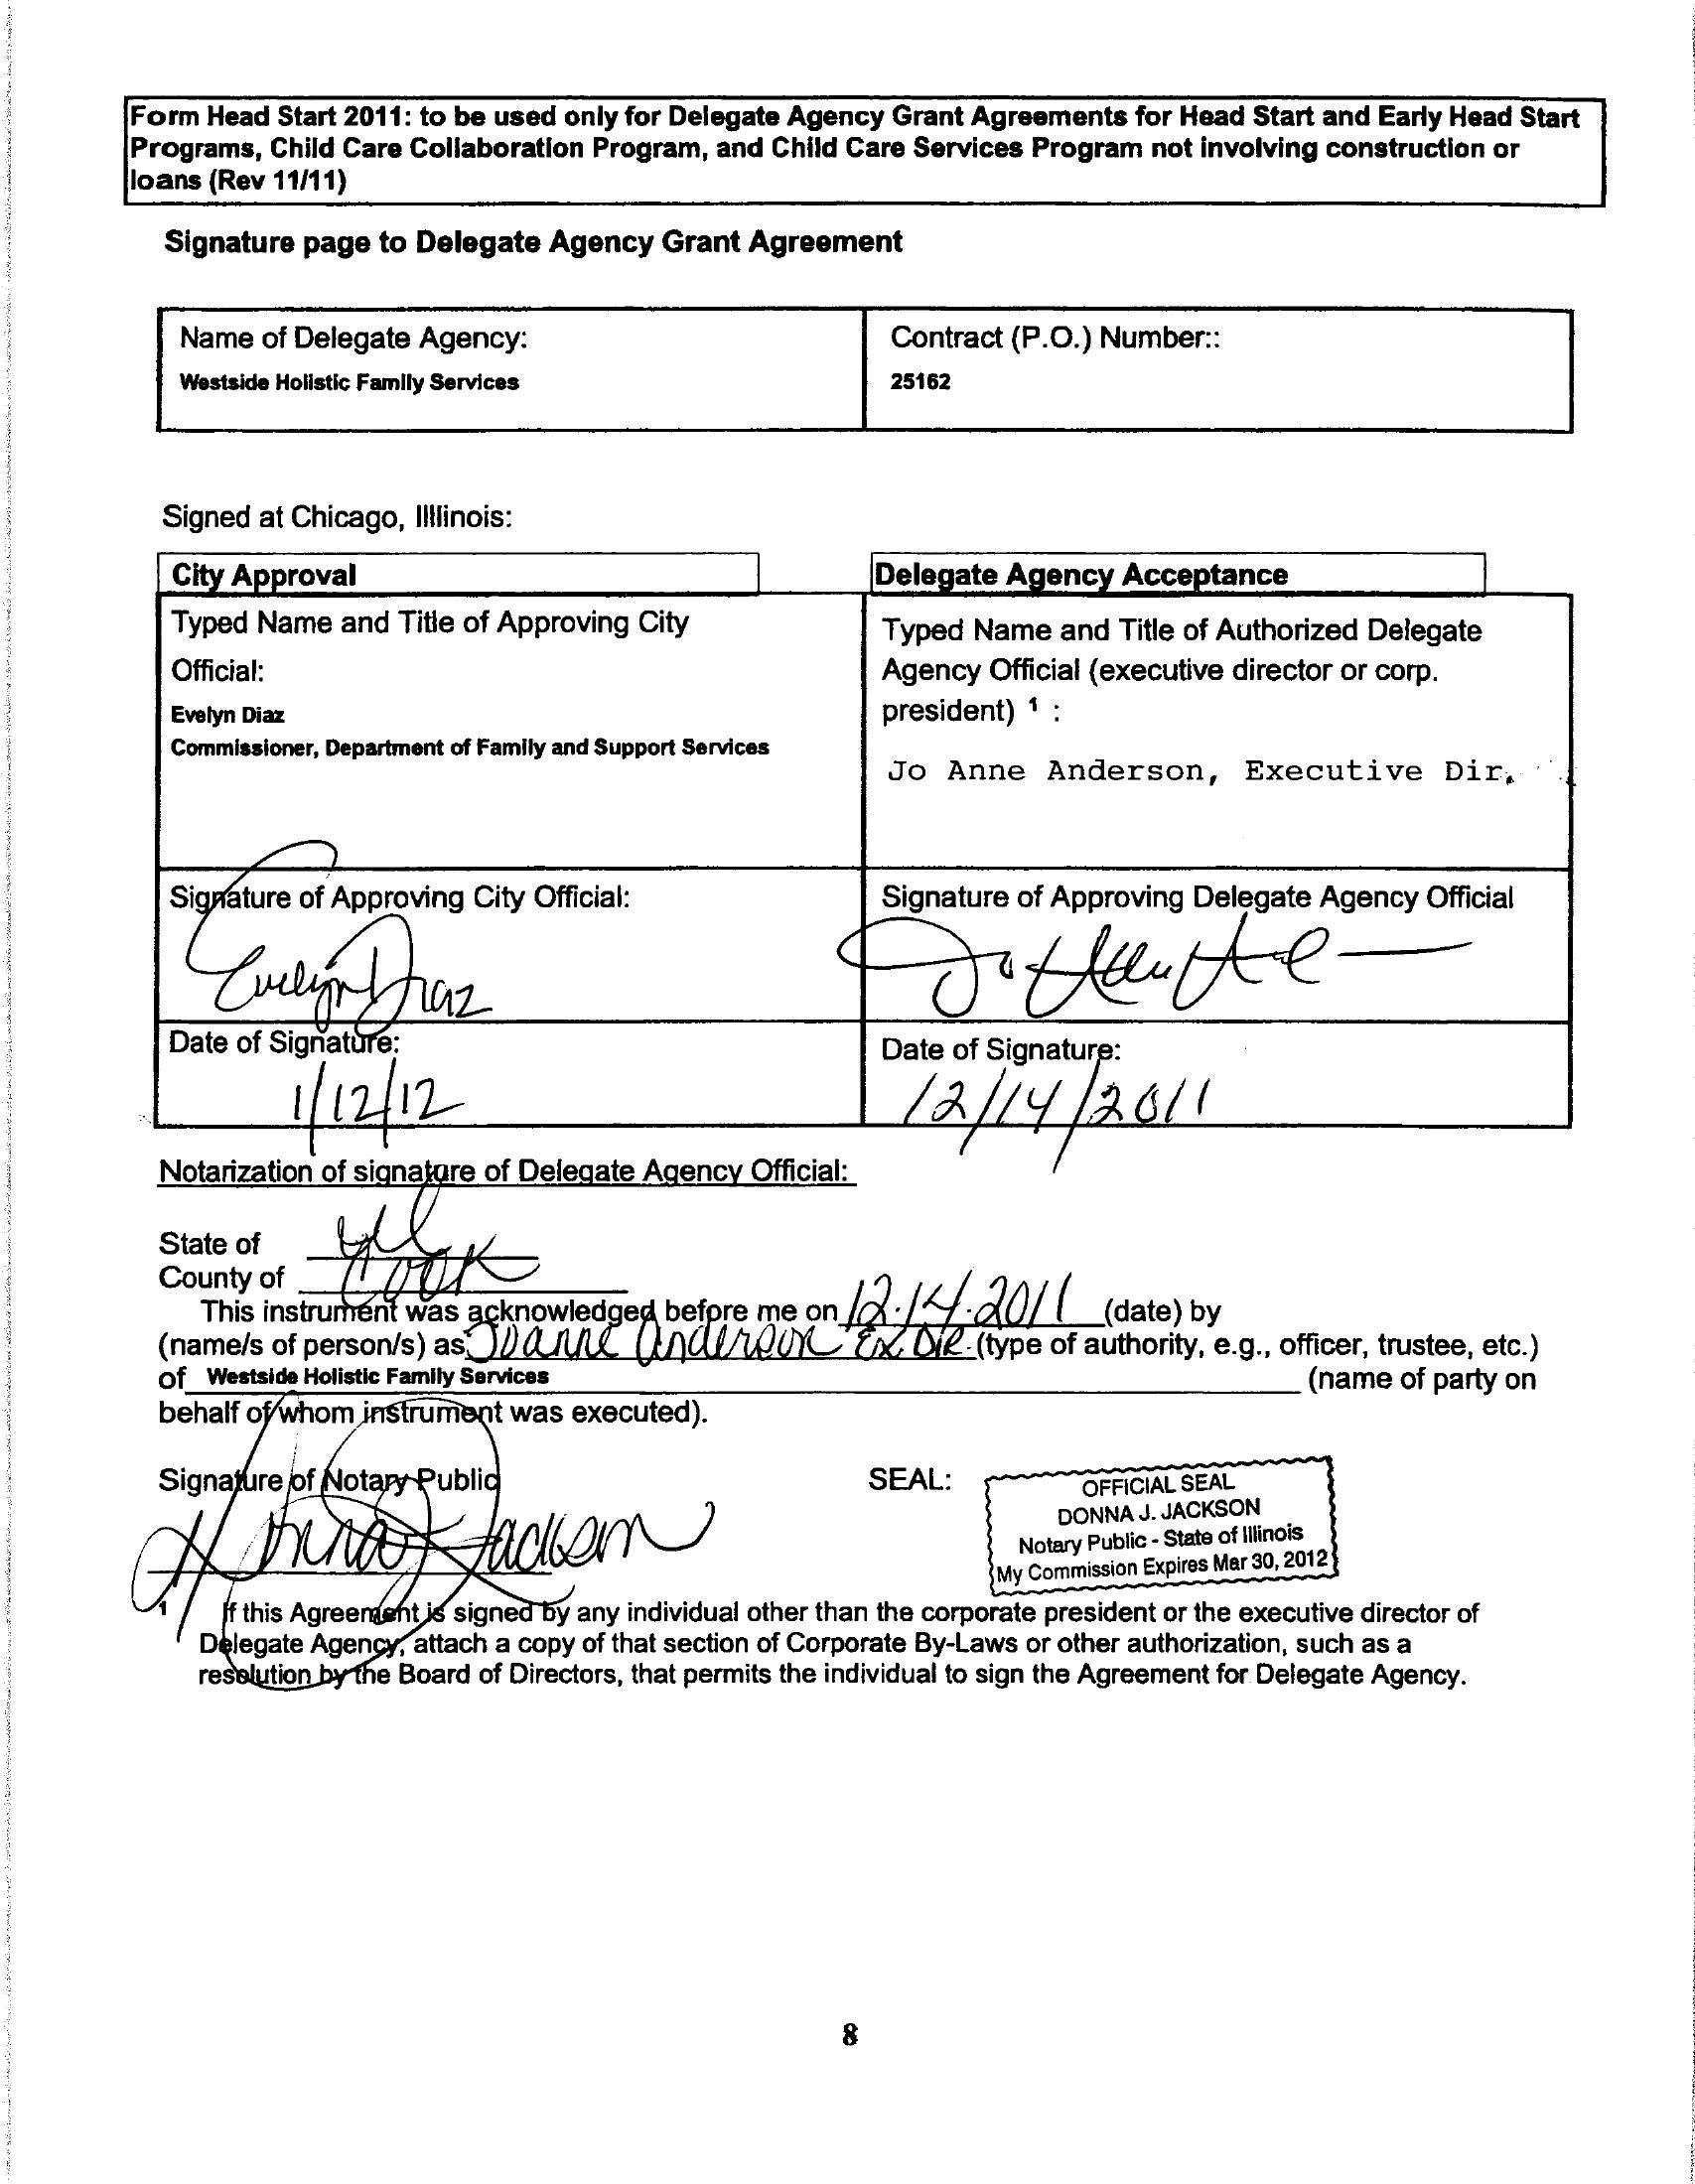 Form Head Start 2011: to be used only for Delegate Agency Grant Agreements for Head Start and Early Head Start
Programs, Child Care Collaboration Program, and Child Care Services Program not involving construction or
loans (Rev 11/11)
Signature page to Delegate Agency Grant Agreement
Name of Delegate Agency:
Westside Holistic Family Services
Contract (P.O.) Number::
25162
Signed at Chicago, Illlinois:
City Approval
Typed Name and Title of Approving City
Official:
Evelyn Diaz
Commissioner, Department of Family and Support Services
Delegate Agency Acceptance
Typed Name and Title of Authorized Delegate
Agency Official (executive director or corp.
president) 1 :
Jo Anne Anderson, Executive Dir.
Signature of Approving City Official:
Evelyn Diaz
Signature of Approving Delegate Agency Official
Date of Signature:
1/12/12
Date of Signature:
12/14/2011
Notarization of signature of Delegate Agency Official:
State of Il
County of Cook
This instrument was acknowledged before me on 12.14.2011 (date) by
(name/s of person/s) as Joanne Anderson Ex. Dir. (type of authority, e.g., officer, trustee, etc.)
of Westside Holistic Family Services (name of party on
behalf of whom instrument was executed).
Signature of Notary Public
Donna J. Jackson
SEAL:
OFFICIAL SEAL
DONNA J. JACKSON
Notary Public - State of Illinois
My Commission Expires Mar 30, 2012
1 If this Agreement is signed by any individual other than the corporate president or the executive director of
Delegate Agency, attach a copy of that section of Corporate By-Laws or other authorization, such as a
resolution by the Board of Directors, that permits the individual to sign the Agreement for Delegate Agency.
8